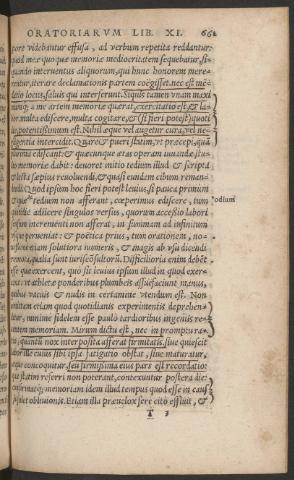 ORATORIARVM LIB. XI. 66
tore videbantur effusa, ad verbum repetita reddantur.
quod meæ quoque memoriæ mediocritatem sequebatur, si
quando interuentus aliquorum, qui hunc honorem mere=
rentur, iterare declamationis partem coëgisset. nec est
dacio locus, saluis qui interfuerunt. Siquis tamen vnam maxi
mamq; à me artem memoriæ quærat, exercitatio est, & la
bor. multa ediscere, multa cogitare, & (si fieri potest) quoti
die, potentissimum est. Nihil æque vel augetur cura, vel ne=
gligentia intercidit. Quare & pueri statim, vt præcepi, quā
plurima ediscant: & quæcunque ætas operam iuuandæ stu=
dio memoriæ dabit: deuoret initio tædium illud & scripta
& lecta sæpius reuoluendi, & quasi eundem cibum reman=
dendi. Quod ipsum hoc fieri potest leuius, si pauca primum
& quæ *tedium non afferant, cœperimus ediscere, tum
quotidie adiicere singulos versus, quorum accessio labori
sensum incrementi non afferat, in summam ad infinitum
vsque perueniat: & poëtica prius, tum oratorum, no=
uissime etiam solutiora numeris, & magis ab vsu dicendi
remota, qualia sunt iurisconsultorū. Difficiliora enim debēt
esse quæ exercent, quo sit leuius ipsum illud in quod exer=
cent. vt athletæ ponderibus plumbeis assuefaciunt manus,
quibus vacuis & nudis in certamine vtendum est. Non
omittam etiam quod quotidianis experimentis deprehen=
ditur, minime fidelem esse paulo tardioribus ingeniis re=
centem memoriam. Mirum dictu est, nec in promptu ra=
tio, quantū nox interposita afferat firmitatis. siue quiescit
labor ille cuius sibi ipsa fatigatio obstat, siue maturatur,
atque concoquitur, seu firmissima eius pars est recordatio:
quæ statim referri non poterant, contexuntur postera die:
confirmatq; memoriam idem illud tempus quod esse in cau=
sa solet obliuionis. Etiam illa præuelox fere cito effluit, &
I 3
*odium